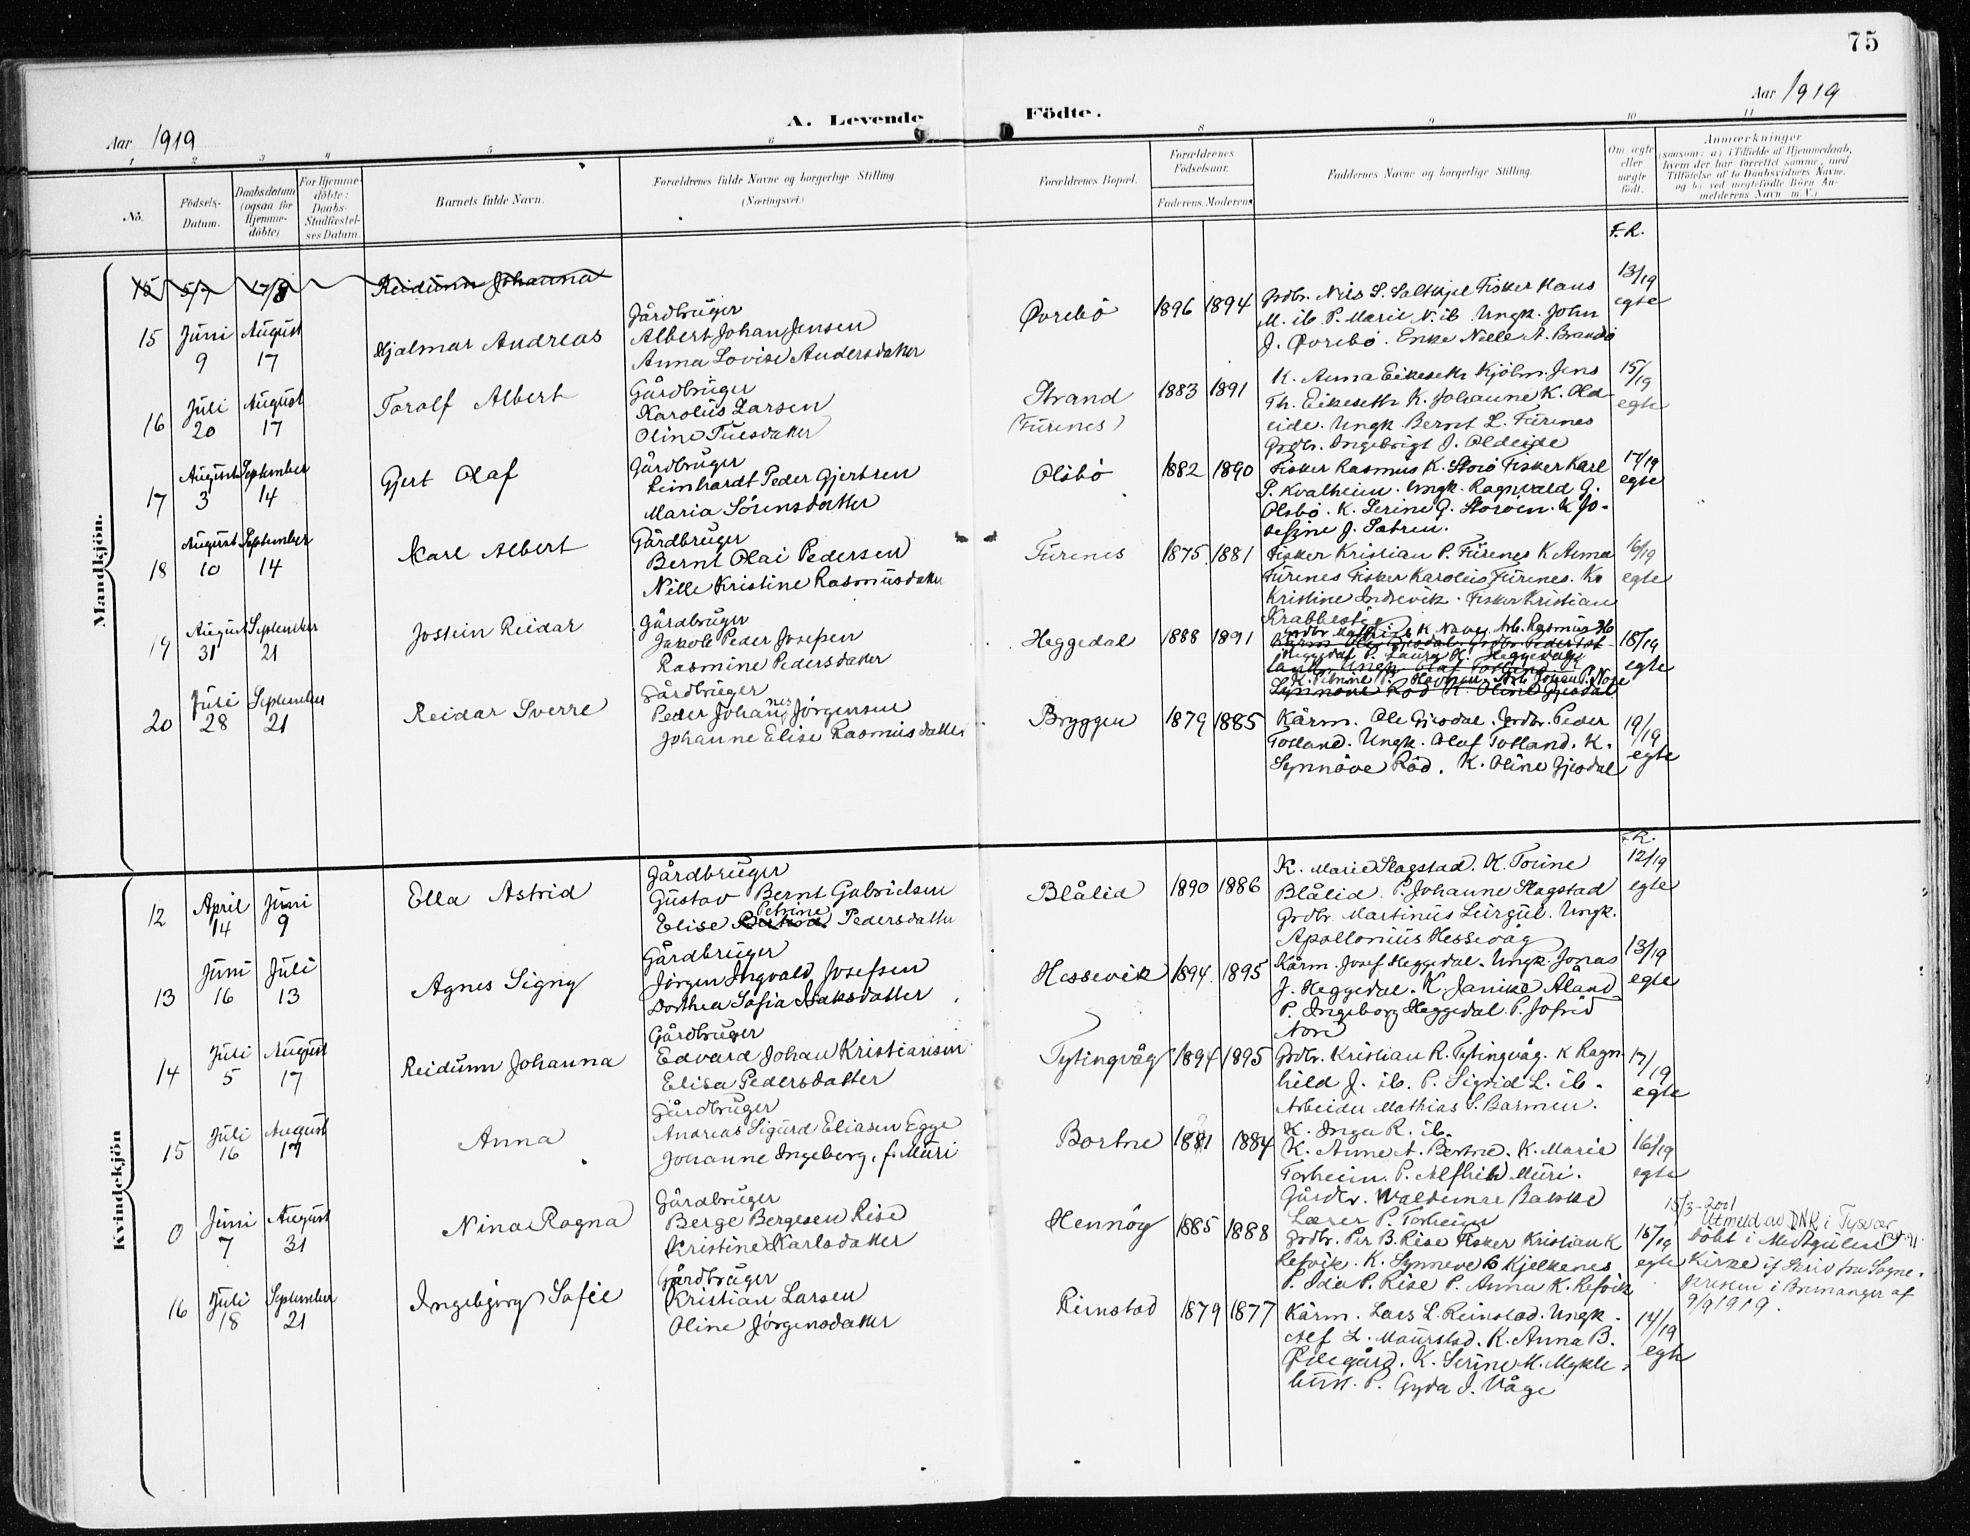 75
Aar 1919
A. Levende Födte.
Aar 1919
1 2 3 4 5 6 8 9 10 11
Nö.
Födsels-Datum.
Daabsdatum (ogsaa for Hjemme-döbte)
For Hjemme-döbte: Daabs-Stadfæstel-ses Datum.
Barnets fulde Navn.
Forældrenes fulde Navne og borgerlige Stilling (Næringsvei.)
Forældrenes Bopæl.
Forældrenes Födselsaar.
Faderens. Moderens.
Faddernes Navne og borgerlige Stilling.
Om ægte eller uægte födt.
Anmærkninger (saasom: a) i Tilfælde af Hjemmedaab, hvem der har forrettet samme, med Tilföielse af to Daabsvidners Navne, og b) ved uægtefödte Börn An-melderens Navn m. V.)
F.R.
Mandkjön.
15 5/7 17/8 Reidunn Johanna
15 Juni 9 August 17 Hjalmar Andreas
Gårdbruger
Albert Johan Jensen
Anna Lovise Andersdatter
Øvrebö 1896 1894
Grdbr. Nils S. Saltkjel Fisker Hans
M. ib. P. Marie N. ib. Ungk. John
J. Øvrebö. Enke Nille A. Brandö
13/19 egte
16 Juli 20 August 17 Torolf Albert
Gårdbruger
Karolus Larsen
Oline Tuesdatter
Strand (Fürenes) 1883 1891
K. Anna Eikeseth Kjöbm. Jens
Th. Eikeseth K. Johanne K. Old-
eide. Ungk. Bernt L. Fürenes
Grdbr. Ingebrigt J. Oldeide
15/19 egte
17 August 3 September 14 Gjert Olaf
Gårdbruger
Reinhardt Peder Gjertsen
Maria Sörensdatter
Olsbö 1882 1890
Fisker Rasmus K. Storö Fisker Karl
P. Kvalheim. Ungk. Ragnvald G.
Olsbö. K. Serine G. Storöen. K. Jo-
sefine J. Sætren.
17/19 egte
18 August 10 September 14 Karl Albert
Gårdbruger
Bernt Olai Pedersen
Nille Kristine Rasmusdatter
Fürenes 1875 1881
Fisker Kristian P. Fürenes K. Anna
Fürenes Fisker Karolius Fürenes. K.
Kristine Indrevik. Fisker Kristian
Krabbestig
16/19 egte
19 August 31 September 21 Jostein Reidar
Gårdbruger
Jakob Peder Josefsen
Rasmine Pedersdatter
Heggedal 1888 1891
18/19 egte
20 Juli 28 September 21 Reidar Sverre
Gårdbruger
Peder Johannes Jörgensen
Johanne Elise Rasmusdatter
Bryggen 1879 1885
Kårm. Ole Gjesdal. Grdbr. Peder
Totland. Ungk. Olaf Totland. K.
Synnöve Röd. K. Oline Gjesdal
19/19 egte
Kvindekjön
F.R.
12 April 14 Juni 9 Ella Astrid
Gårdbruger
Gustav Bernt Gabrielsen
Elise Petrine Pedersdatter
Blålid 1890 1886
K. Marie Slagstad. K. Torine
Blålid. P. Johanne Slagstad
Grdbr. Martinus Leirgul. Ungk.
Apollonius Hessevåg
12/19 egte
13 Juni 16 Juli 13 Agnes Signy
Gårdbruger
Jörgen Ingvald Josefsen
Dorthea Sofia Isaksdatter
Hessevik 1894 1895
Kårm. Josef Heggedal. Ungk. Jonas
J. Heggedal. K. Janike Åland
P. Ingeborg Heggedal P. Jofrid
Nore
13/19 egte
14 Juli 5 August 17 Reidunn Johanna
Gårdbruger
Edvard Johan Kristiansen
Elisa Pedersdatter
Tytingvåg 1894 1895
Grdbr. Kristian R. Tytingvåg. K. Ragn-
hild J. ib. P. Sigrid L. ib.
Arbeider Mathias S. Barmen.
K. Inga R. ib.
17/19 egte
15 Juli 16 August 17 Anna
Gårdbruger
Andreas Sigurd Eliasen Egge
Johanne Ingeborg, f. Muri
Bortne 1881 1884
K. Anne A. Bortne. K. Marie
Torheim. P. Alfhild Muri.
Gårdbr. Waldemar Bakke
Lærer P. Torheim
16/19 egte
0 Juni 7 August 31 Nina Ragna
Gårdbruger
Berge Bergesen Rise
Kristine Karlsdatter
Hennöy 1885 1888
Grdbr. Per B. Rise Fisker Kristian K.
Refvik. K. Synneve Kjelkenes
P. Ida P. Rise P. Anna K. Refvik
18/19 egte
15/3-2001
Utmeld av DNK i Tysvær
Döbt i Midtgulen
Kirke if. Skriv fra Sogne-
presten i Bremanger af
9/9 1919.
16 Juli 18 September 21 Ingebjørg Sofie
Gårdbruger
Kristian Larsen
Oline Jørgensdatter
Rimstad 1879 1877
Kårm. Lars L. Rimstad. Ungk.
Alf L. Maurstad. K. Anna B.
Ødegård. K. Serine M. Mykle-
bust. P. Gyda J. Våge
14/19 egte